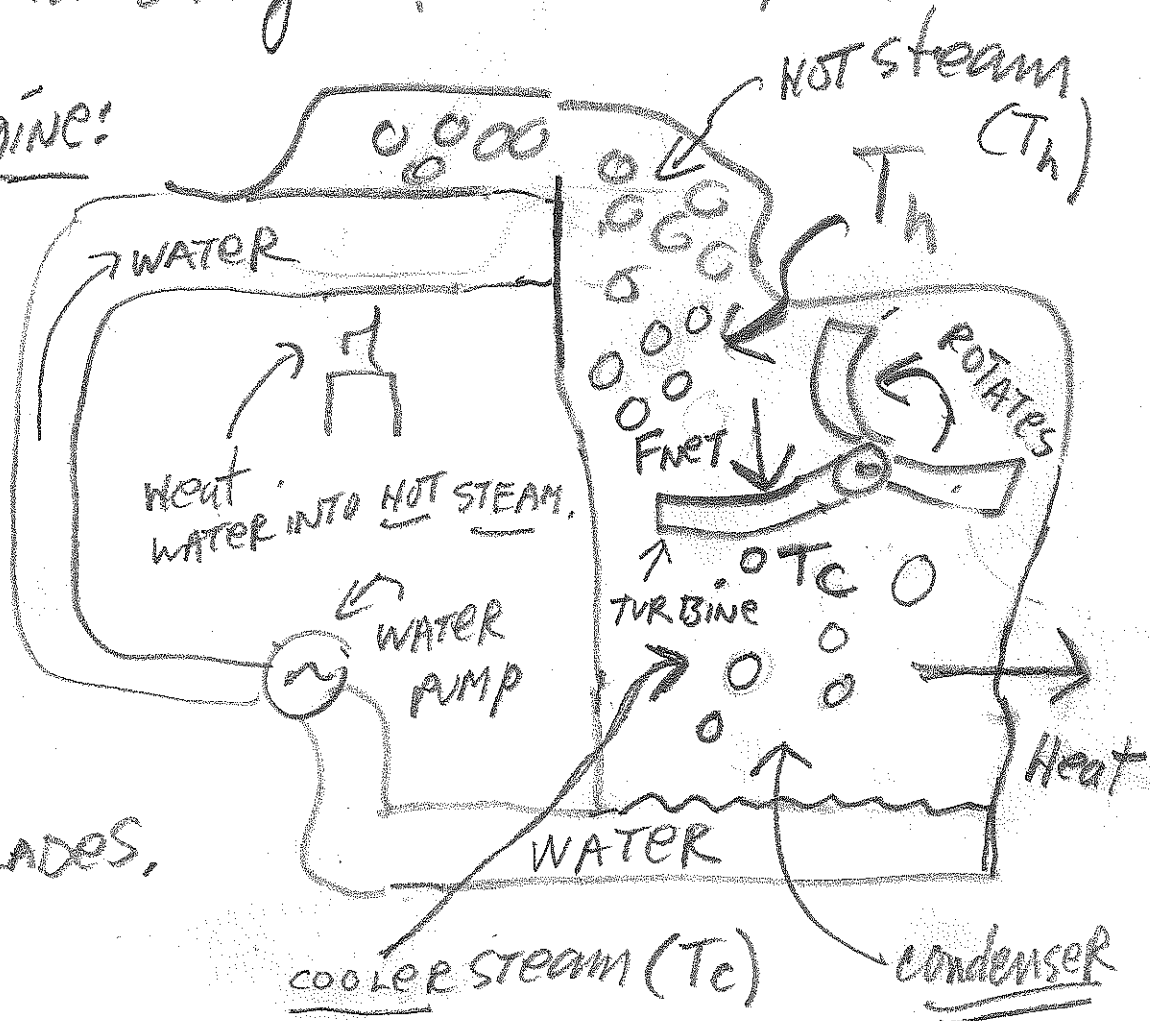 HOT steam
(Th)
Th
WATER
ROTATES
FNET
Heat
WATER INTO HOT STEAM.
TURBINE
Tc
WATER
PUMP
Heat
WATER
COOLER STEAM (Tc)
condenser